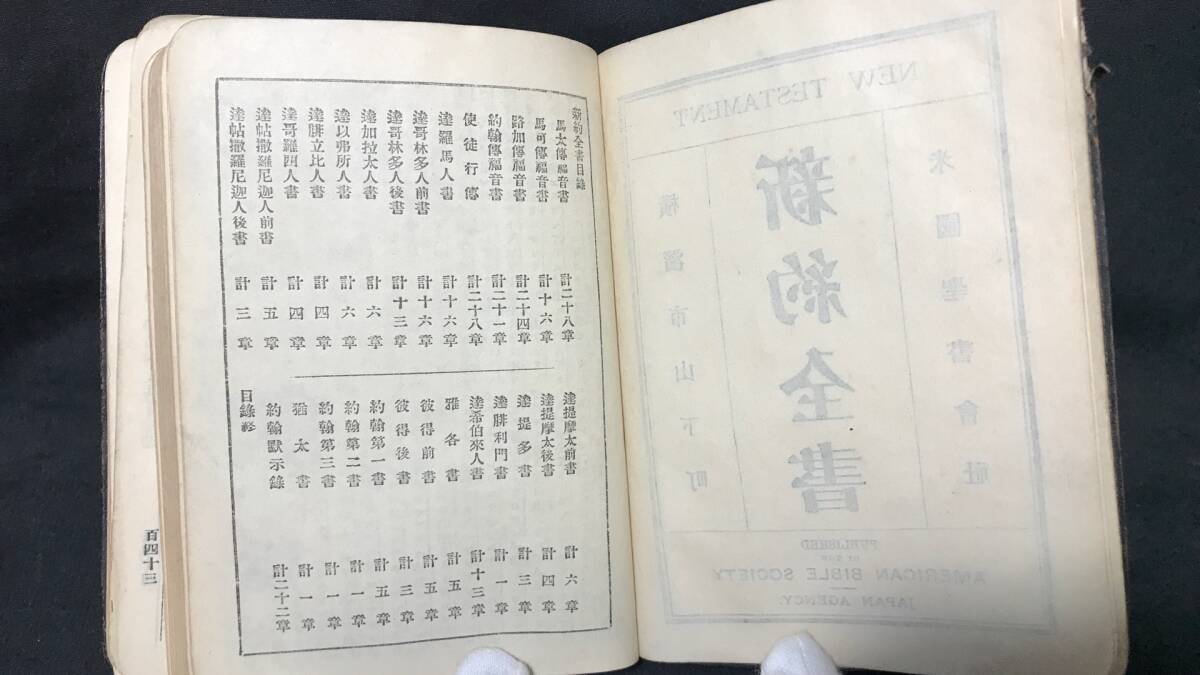 NEW TESTAMENT
米國聖書會社
新約全書
橫濱市山下町
PUBLISHED
BY THE
AMERICAN BIBLE SOCIETY
JAPAN AGENCY.
新約全書目錄
馬太傳福音書 計二十八章
馬可傳福音書 計十六章
路加傳福音書 計二十四章
約翰傳福音書 計二十一章
使徒行傳 計二十八章
達羅馬人書 計十六章
達哥林多人前書 計十六章
達哥林多人後書 計十三章
達加拉太人書 計六章
達以弗所人書 計六章
達腓立比人書 計四章
達哥羅西人書 計四章
達帖撒羅尼迦人前書 計五章
達帖撒羅尼迦人後書 計三章
達提摩太前書 計六章
達提摩太後書 計四章
達提多書 計三章
達腓利門書 計一章
達希伯來人書 計十三章
雅各書 計五章
彼得前書 計五章
彼得後書 計三章
約翰第一書 計五章
約翰第二書 計一章
約翰第三書 計一章
猶太書 計一章
約翰默示錄 計二十二章
目錄終
百四十三